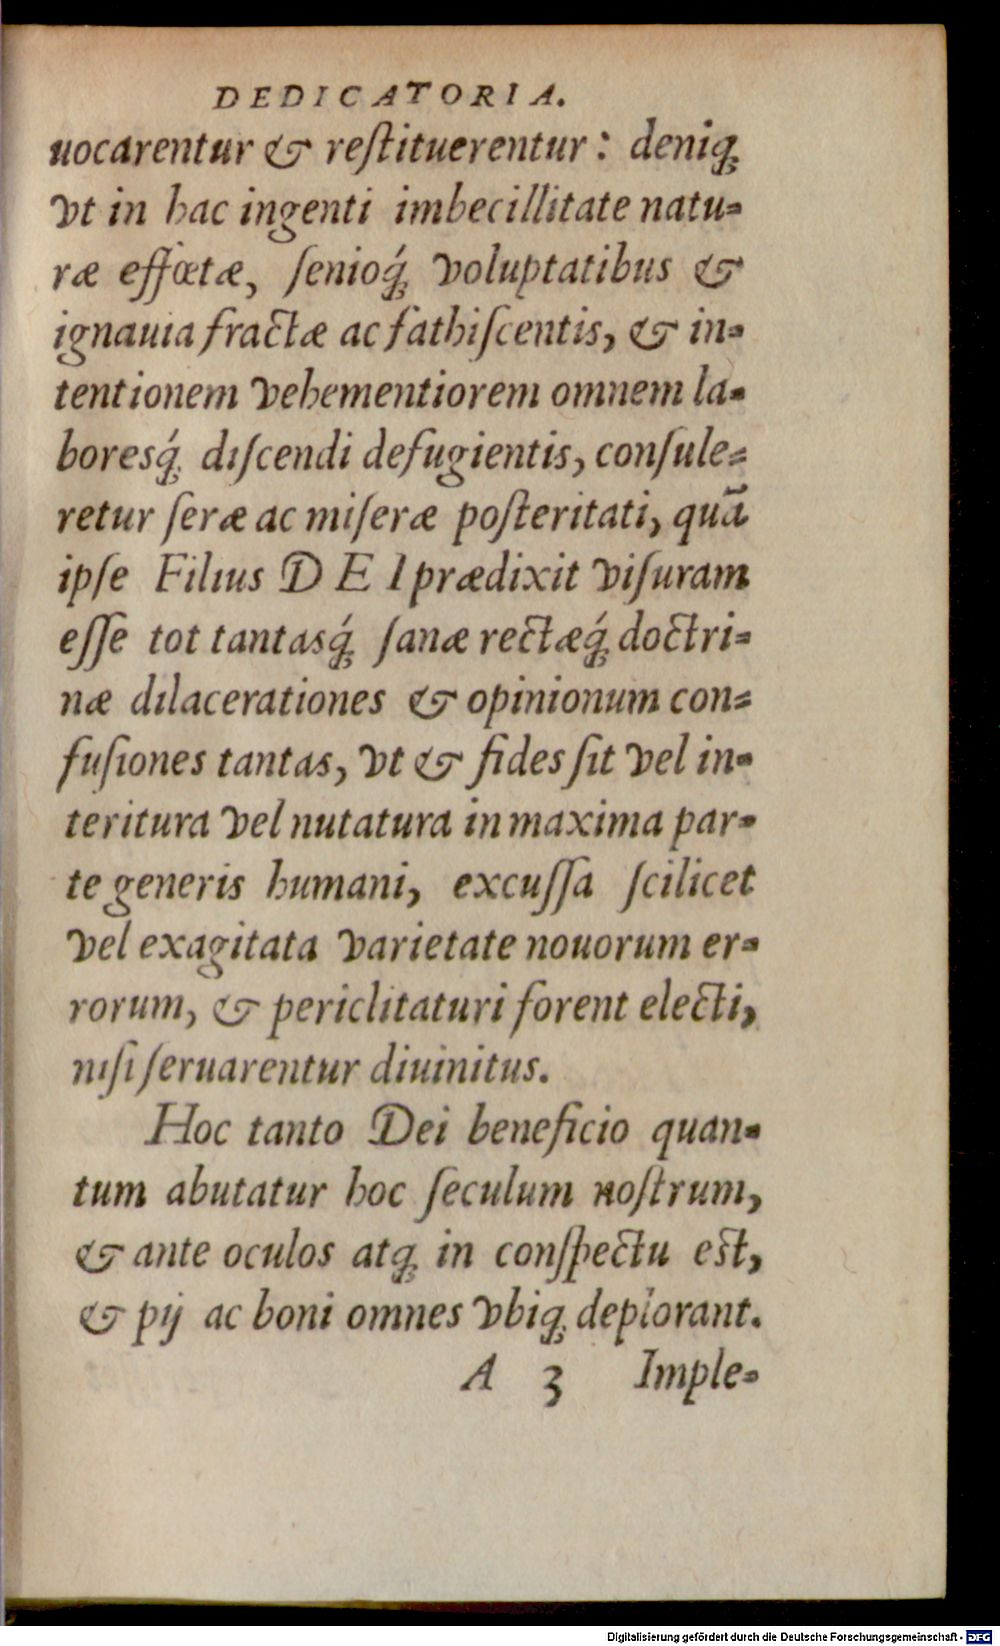 DEDICATORIA.
uocarentur & reſtituerentur : deniq;
vt in hac ingenti imbecillitate natu-
ræ effœtæ, ſenioq́; voluptatibus &
ignauia fractæ ac fathiſcentis, & in-
tentionem vehementiorem omnem la-
boresq́; diſcendi defugientis, conſule-
retur ſeræ ac miſeræ poſteritati, quā
ipſe Filius DEI prædixit viſuram
eſſe tot tantasq́; ſanæ rectæq́; doctri-
næ dilacerationes & opinionum con-
fuſiones tantas, vt & fides ſit vel in-
teritura vel nutatura in maxima par-
te generis humani, excuſſa ſcilicet
vel exagitata varietate nouorum er-
rorum, & periclitaturi forent electi,
niſi ſeruarentur diuinitus.
Hoc tanto Dei beneficio quan-
tum abutatur hoc ſeculum noſtrum,
& ante oculos atq; in conſpectu eſt,
& pij ac boni omnes vbiq; deplorant.
A 3 Imple-
Digitalisierung gefördert durch die Deutsche Forschungsgemeinschaft - DFG